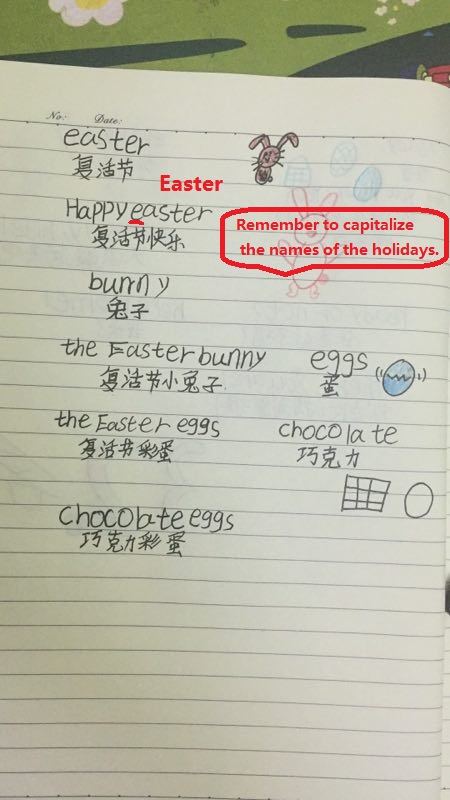 No:
Date:
easter
复活节
Easter
Happy easter
复活节快乐
Remember to capitalize
the names of the holidays.
bunny
兔子
the Easter bunny
复活节小兔子
eggs
蛋
the Easter eggs
复活节彩蛋
chocolate
巧克力
chocolate eggs
巧克力彩蛋